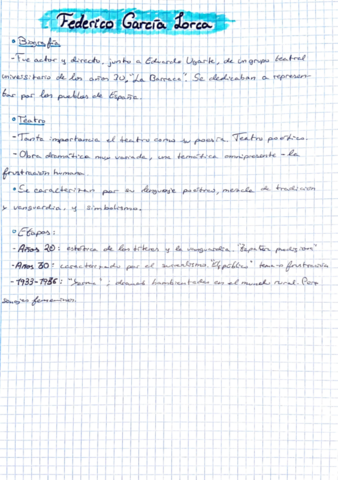 Federico García Lorca
• Biografía
- Fue actor y directo, junto a Eduardo Ugarte, de un grupo teatral
universitario de los años 30, "La Barraca". Se dedicaban a represen-
tar por los pueblos de España.
• Teatro
- Tanta importancia el teatro como su poesía. Teatro poético.
- Obra dramática muy variada, una temática omnipresente - la
frustración humana.
• Se caracterizan por su lenguaje poético, mezcla de tradición
y vanguardia, y simbolismo.
• Etapas:
- Años 20: estética de los títeres y la vanguardia.
- Años 30: caracterizado por el surrealismo. "El público" frustración
- 1933-1936: "Yerma"; dramas ambientados en el mundo rural. Pero
femeninos.